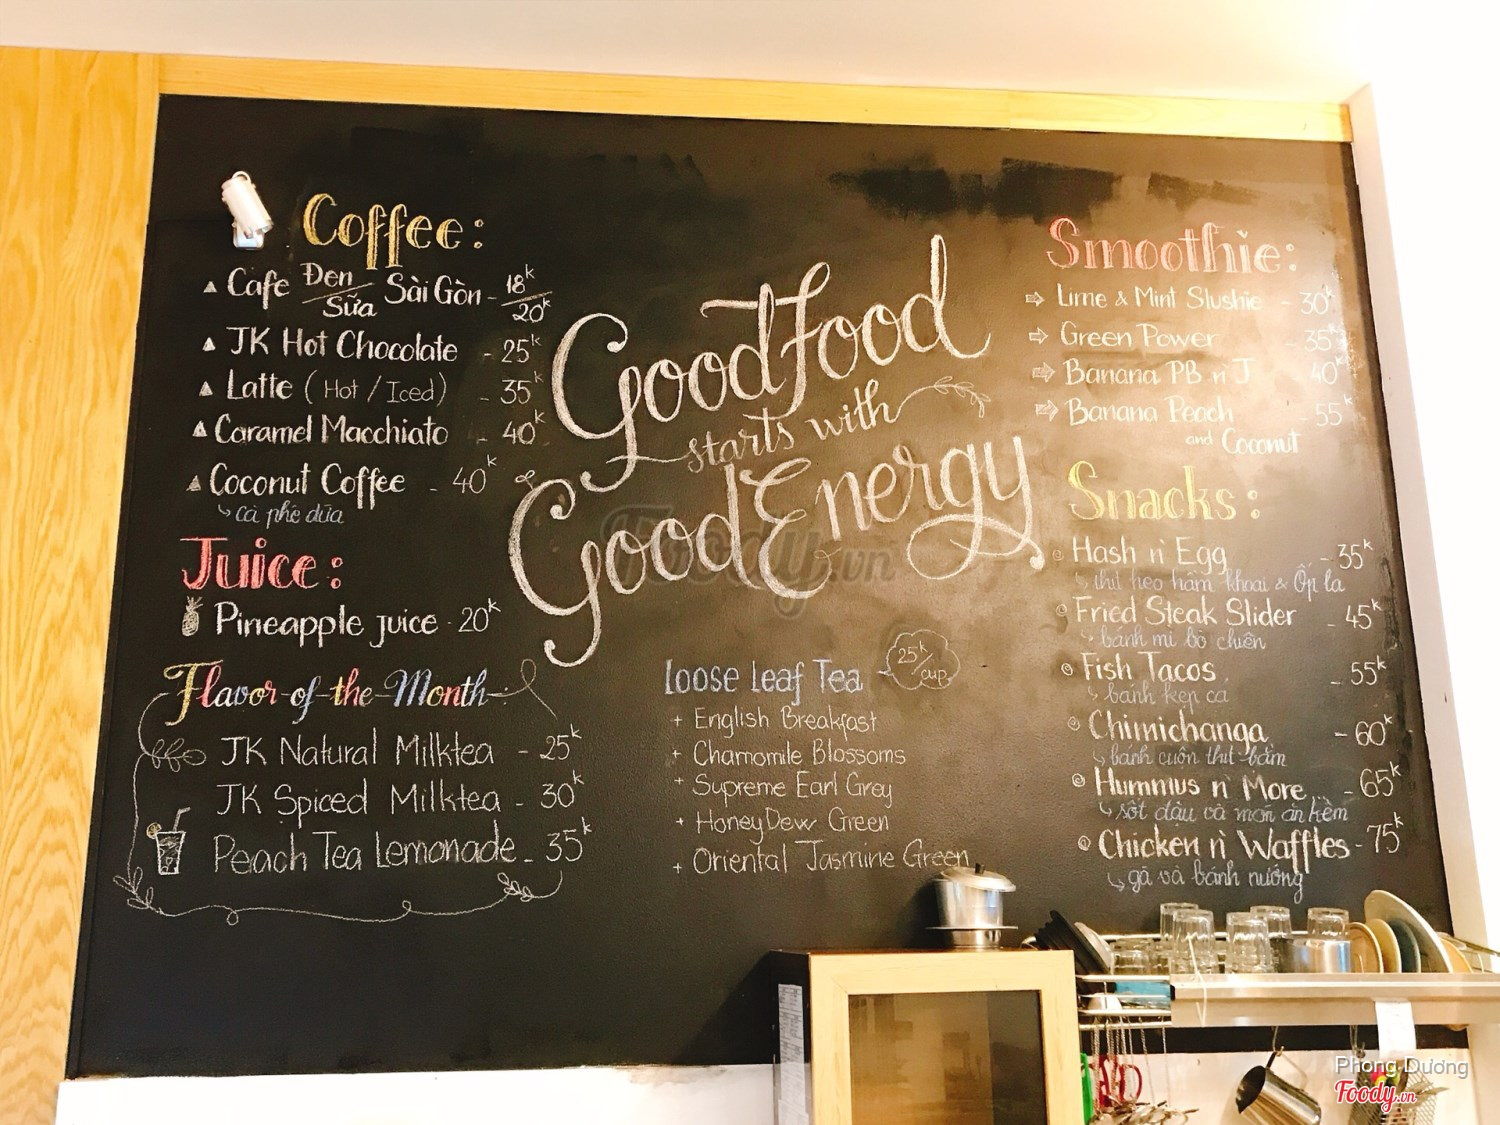 Coffee:
Cafe Đen/Sữa Sài Gòn - 18k/20k
JK Hot Chocolate - 25k
Latte (Hot / Iced) - 35k
Caramel Macchiato - 40k
Coconut Coffee - 40k
cà phê dừa
Juice:
Pineapple juice - 20k
Flavor of the Month:
JK Natural Milktea - 25k
JK Spiced Milktea - 30k
Peach Tea Lemonade - 35k
Good Food
starts with
Good Energy
Foody.vn
Loose Leaf Tea - 25k/cup
+ English Breakfast
+ Chamomile Blossoms
+ Supreme Earl Grey
+ HoneyDew Green
+ Oriental Jasmine Green
Smoothie:
Lime & Mint Slushie - 30k
Green Power - 35k
Banana PB n' J 40k
Banana Peach - 55k
and Coconut
Snacks:
Hash n' Egg - 35k
thịt heo hầm khoai & Ốp la
Fried Steak Slider - 45k
bánh mì bò chiên
Fish Tacos - 55k
bánh kẹp cá
Chimichanga - 60k
bánh cuốn thịt bằm
Hummus n' More - 65k
sốt đậu và món ăn kèm
Chicken n' Waffles - 75k
gà và bánh nướng
Phong Dương
Foody.vn